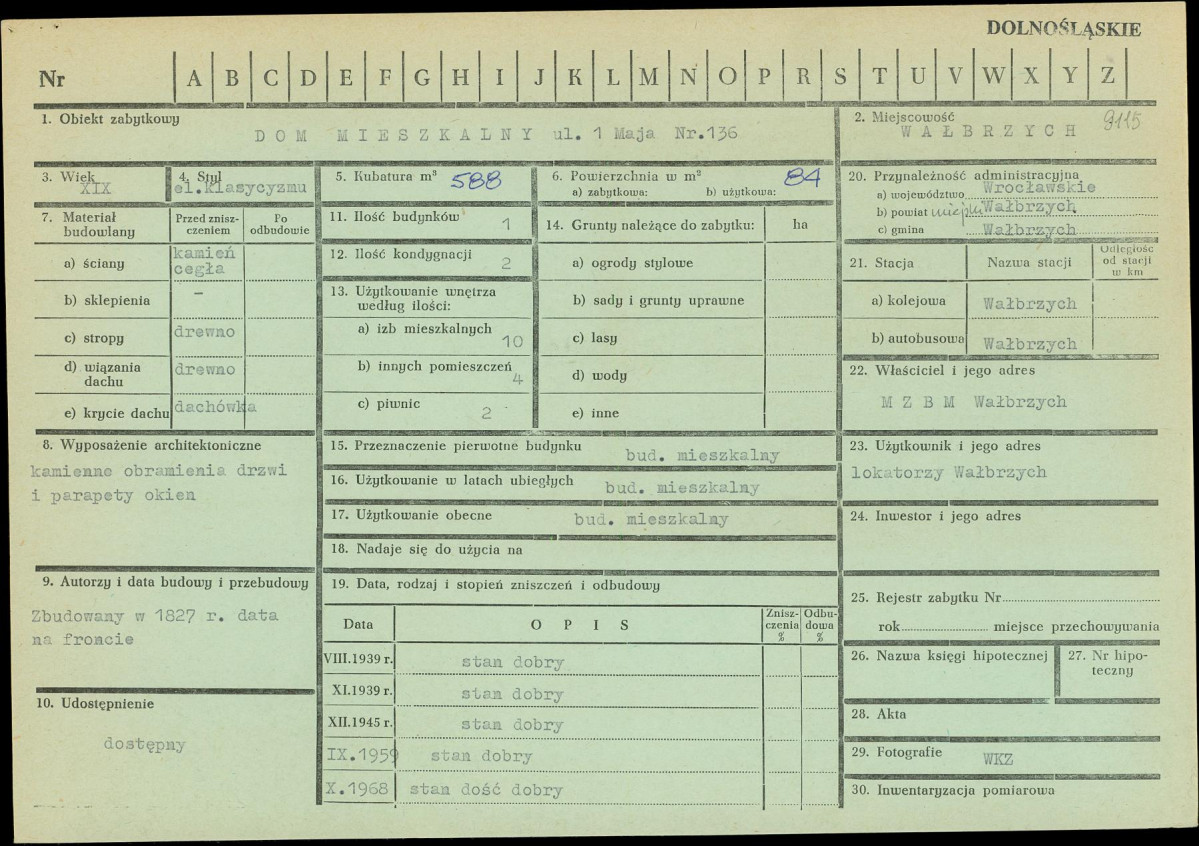 DOLNOŚLĄSKIE
Nr A B C D E F G H I J K L M N O P R S T U V W X Y Z
1. Obiekt zabytkowy
DOM MIESZKALNY ul. 1 Maja Nr.136
2. Miejscowość
WAŁBRZYCH 9115
3. Wiek
XIX
4. Styl
el.klasycyzmu
5. Kubatura m³ 588
6. Powierzchnia w m² 84
a) zabytkowa: b) użytkowa:
7. Materiał budowlany
Przed zniszczeniem
Po odbudowie
a) ściany kamień
cegła
b) sklepienia –
c) stropy drewno
d) wiązania dachu drewno
e) krycie dachu dachówka
8. Wyposażenie architektoniczne
kamienne obramienia drzwi
i parapety okien
9. Autorzy i data budowy i przebudowy
Zbudowany w 1827 r. data
na froncie
10. Udostępnienie
dostępny
11. Ilość budynków 1
12. Ilość kondygnacji 2
13. Użytkowanie wnętrza
według ilości:
a) izb mieszkalnych 10
b) innych pomieszczeń 4
c) piwnic 2
14. Grunty należące do zabytku: ha
a) ogrody stylowe
b) sady i grunty uprawne
c) lasy
d) wody
e) inne
15. Przeznaczenie pierwotne budynku bud. mieszkalny
16. Użytkowanie w latach ubiegłych bud. mieszkalny
17. Użytkowanie obecne bud. mieszkalny
18. Nadaje się do użycia na
19. Data, rodzaj i stopień zniszczeń i odbudowy
Data OPIS Zniszczenia % Odbudowa %
VIII.1939 r. stan dobry
XI.1939 r. stan dobry
XII.1945 r. stan dobry
IX.1959 stan dobry
X.1968 stan dość dobry
20. Przynależność administracyjna
a) województwo Wrocławskie
b) powiat miejski Wałbrzych
c) gmina Wałbrzych
21. Stacja Nazwa stacji Odległość od stacji w km
a) kolejowa Wałbrzych
b) autobusowa Wałbrzych
22. Właściciel i jego adres
MZBM Wałbrzych
23. Użytkownik i jego adres
lokatorzy Wałbrzych
24. Inwestor i jego adres
25. Rejestr zabytku Nr
rok miejsce przechowywania
26. Nazwa księgi hipotecznej
27. Nr hipoteczny
28. Akta
29. Fotografie WKZ
30. Inwentaryzacja pomiarowa